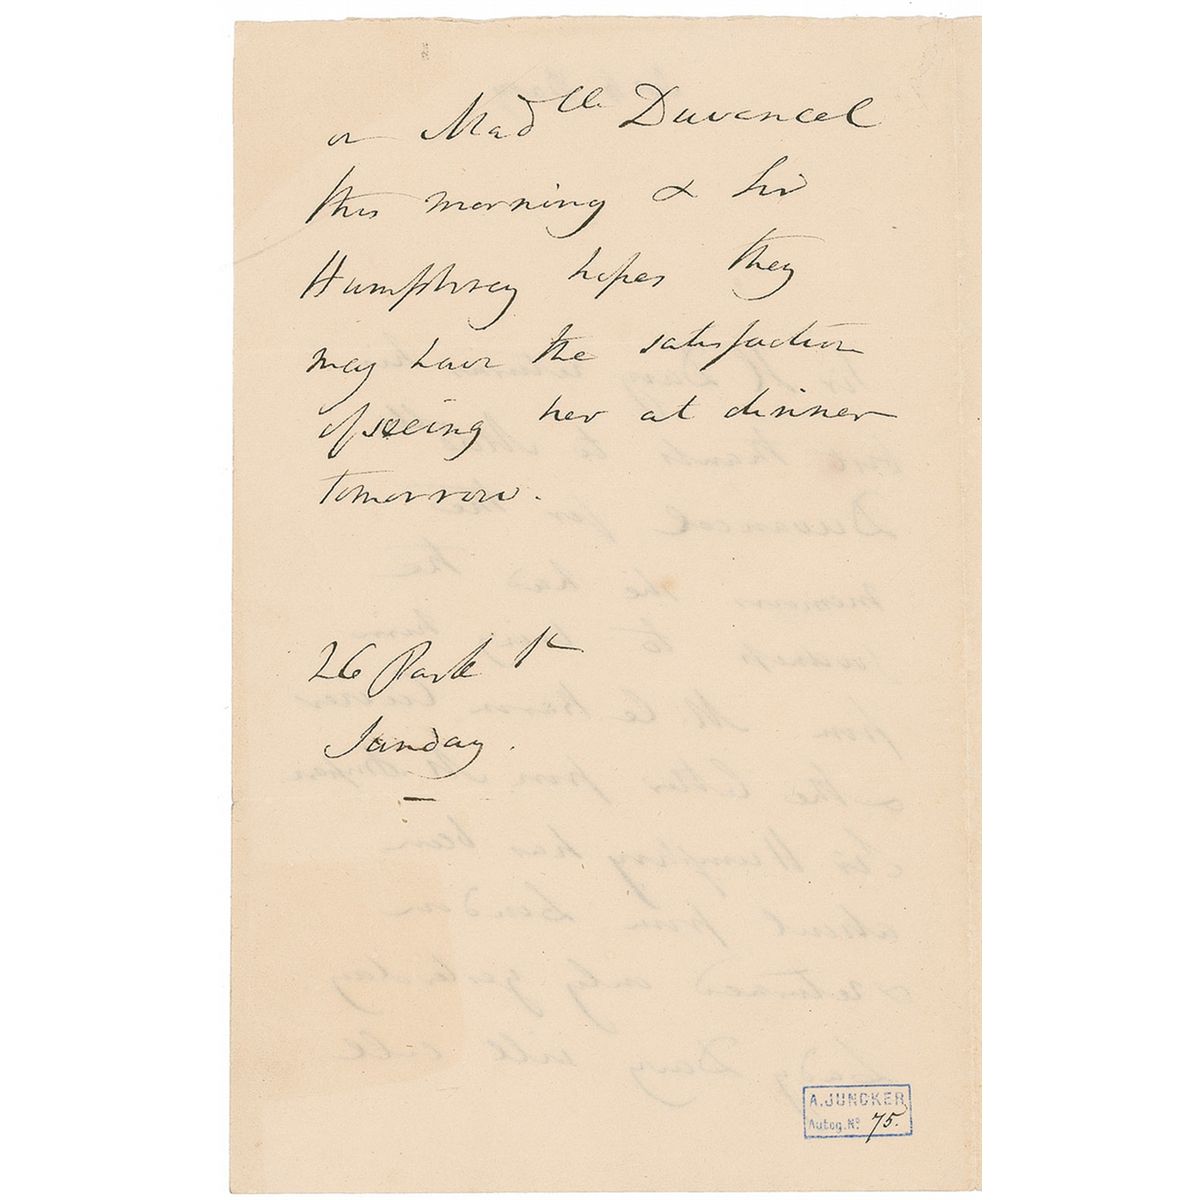 on Mad^lle Duvancel
this morning & Sir
Humphrey hopes they
may have the satisfaction
of seeing her at dinner
tomorrow.
26 Park St
Sunday.
A. JUNCKER
Autog. No 75.